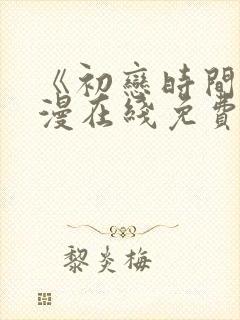 《初戀時間
漫在綫免費
黎炎梅